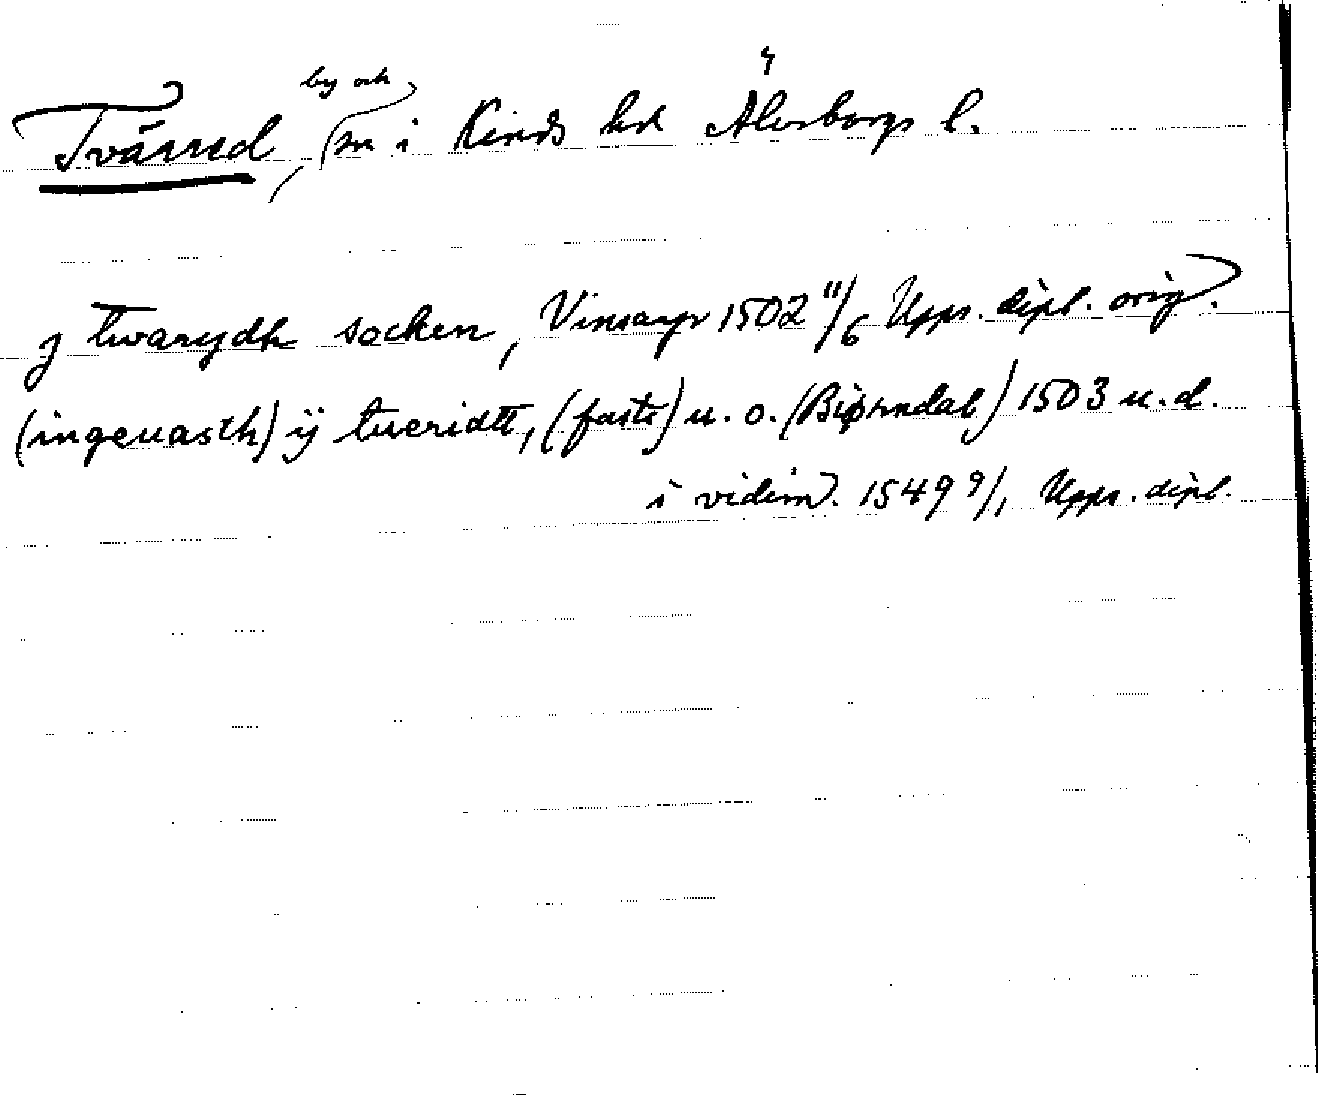 Tvärred, by och sn i Kinds hd Älvsborgs l.
j twarydh socken, Vinsarp 1502 11/6 Upps. dipl. orig.
(ingeuasth) ij tueridtt, (faste) u. o. (Biørndal) 1503 u. d.
i vidim. 1549 9/1 Upps. dipl.